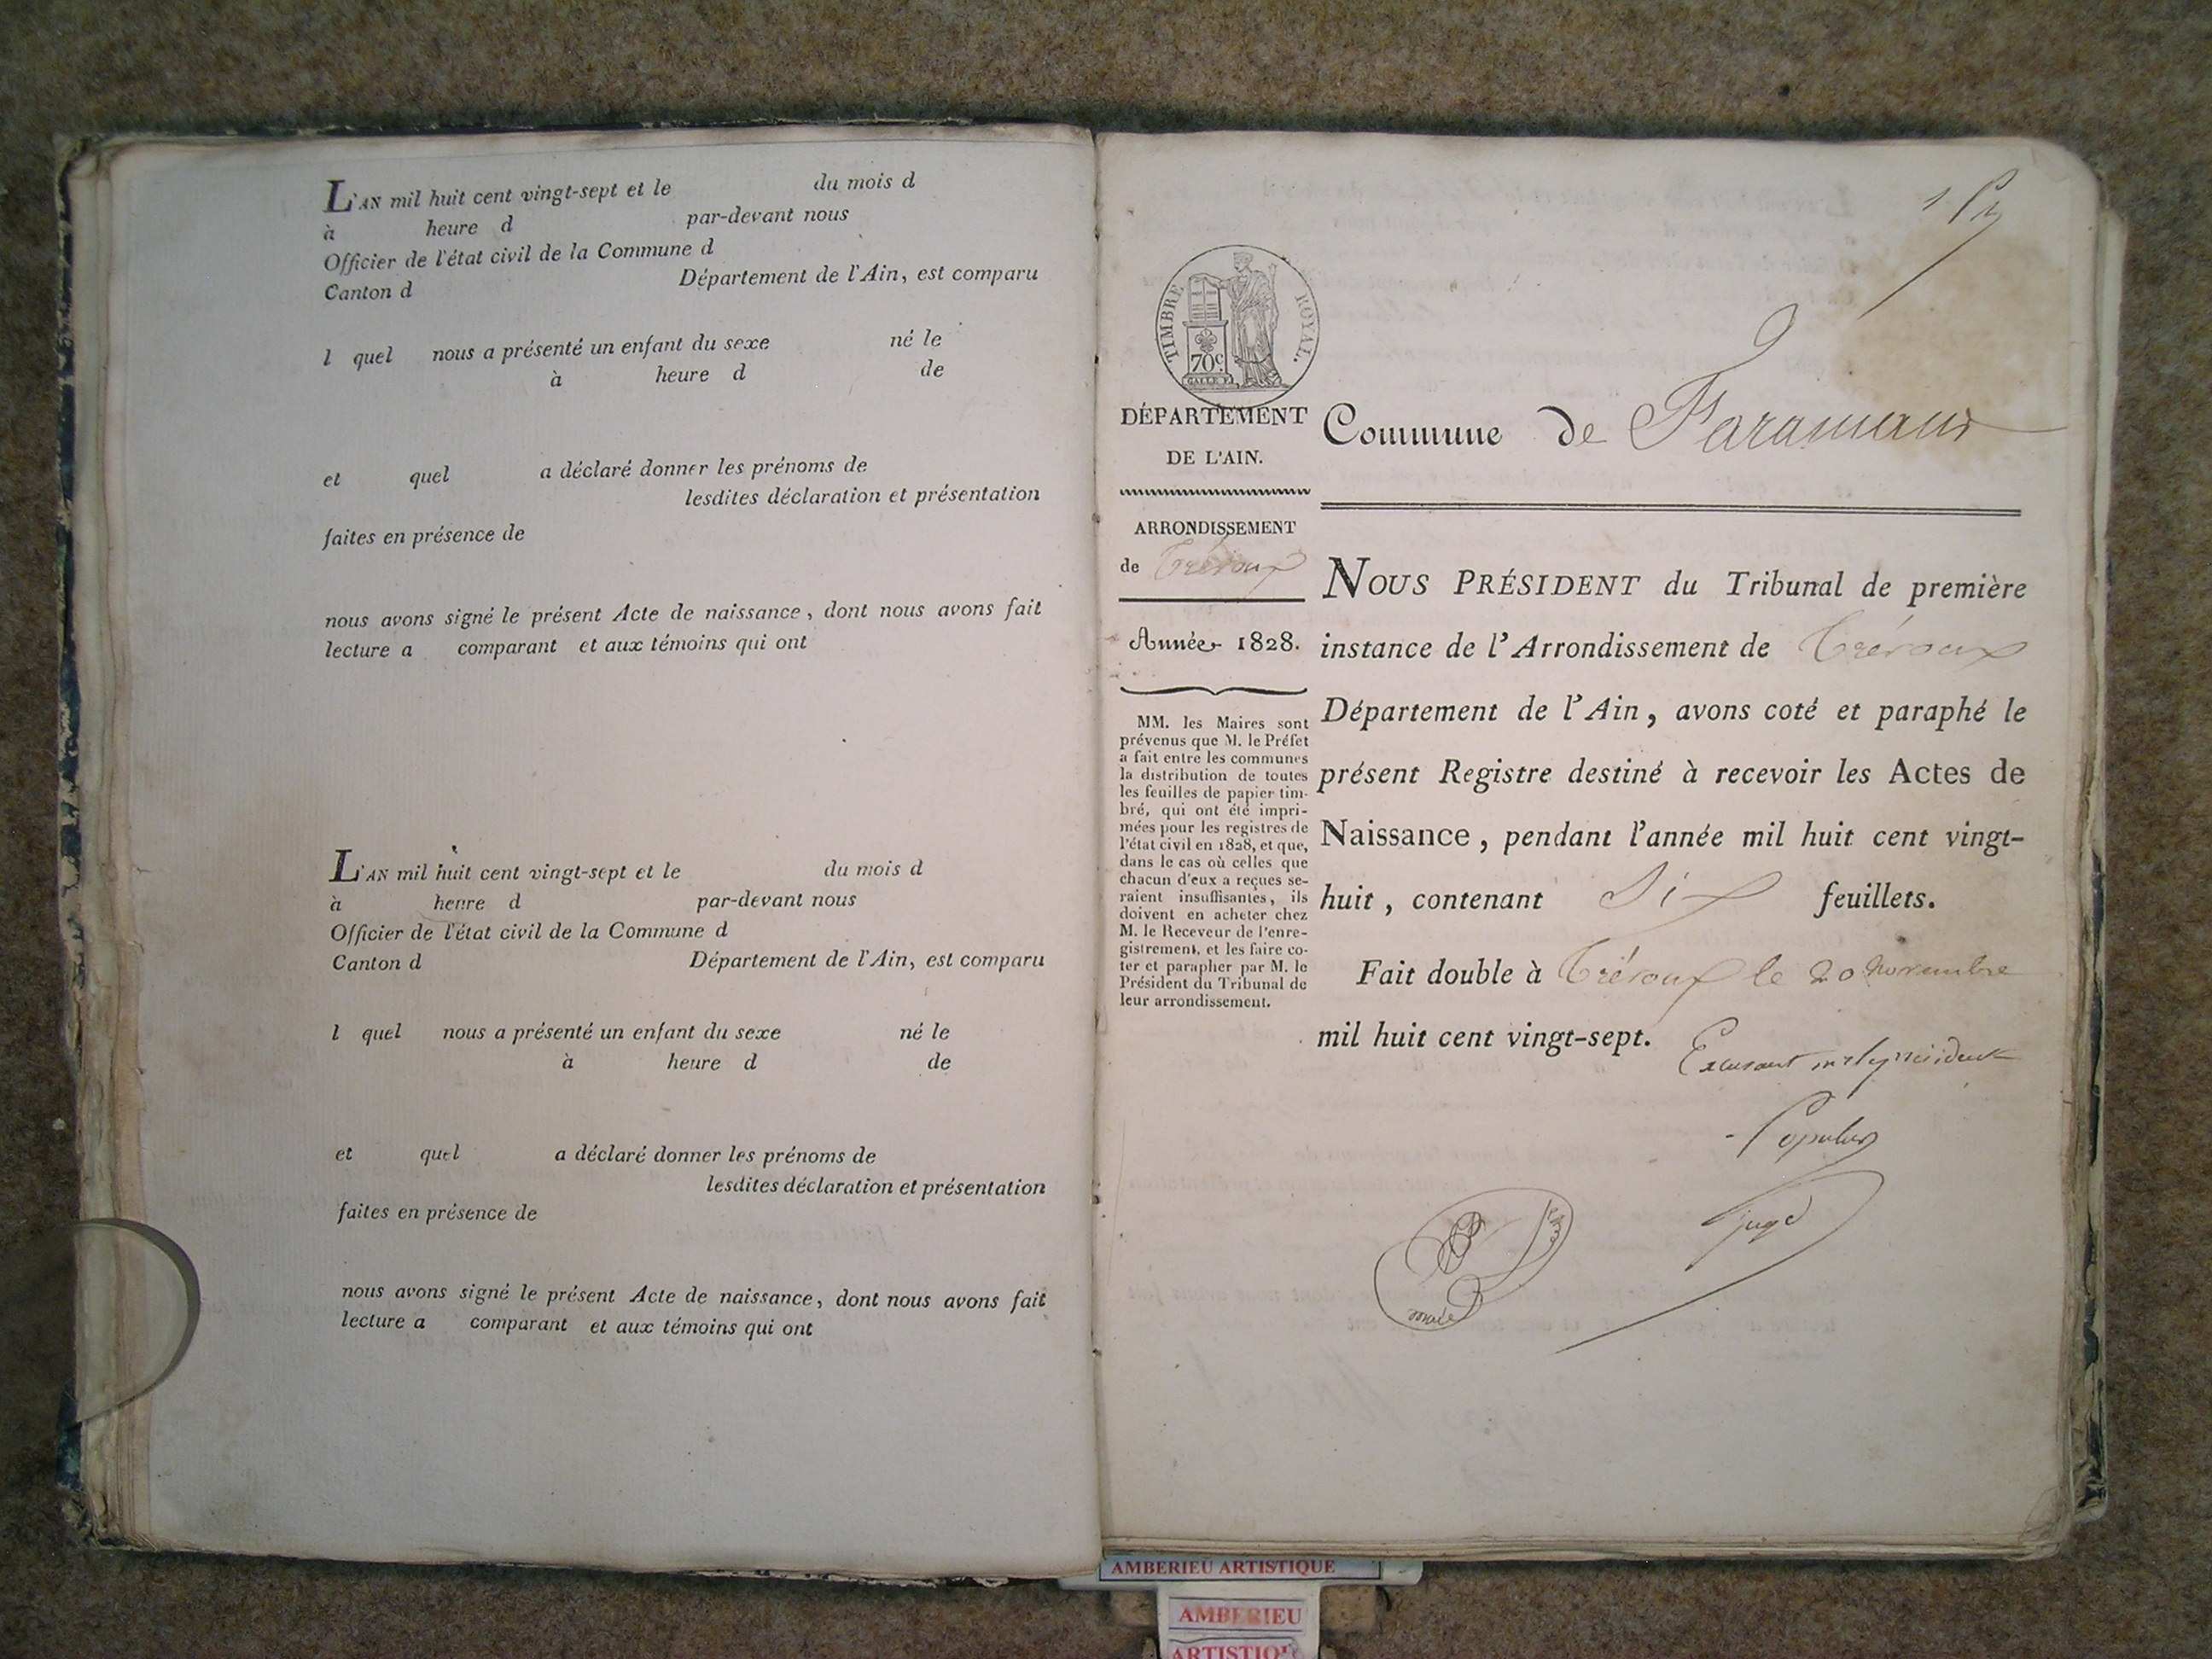 L'AN mil huit cent vingt-sept et le du mois d
à heure d par-devant nous
Officier de l'état civil de la Commune d
Canton d Département de l'Ain, est comparu
l quel nous a présenté un enfant du sexe né le
à heure d de
et quel a déclaré donner les prénoms de
lesdites déclaration et présentation
faites en présence de
nous avons signé le présent Acte de naissance, dont nous avons fait
lecture a comparant et aux témoins qui ont
L'AN mil huit cent vingt-sept et le du mois d
à heure d par-devant nous
Officier de l'état civil de la Commune d
Canton d Département de l'Ain, est comparu
l quel nous a présenté un enfant du sexe né le
à heure d de
et quel a déclaré donner les prénoms de
lesdites déclaration et présentation
faites en présence de
nous avons signé le présent Acte de naissance, dont nous avons fait
lecture a comparant et aux témoins qui ont
TIMBRE ROYAL.
70c.
DÉPARTEMENT
DE L'AIN.
ARRONDISSEMENT
de Trévoux
Année 1828.
MM. les Maires sont
prévenus que M. le Préfet
a fait entre les communes
la distribution de toutes
les feuilles de papier tim-
bré, qui ont été impri-
mées pour les registres de
l'état civil en 1828, et que,
dans le cas où celles que
chacun d'eux a reçues se-
raient insuffisantes, ils
doivent en acheter chez
M. le Receveur de l'enre-
gistrement, et les faire co-
ter et parapher par M. le
Président du Tribunal de
leur arrondissement.
Commune de Faramans
NOUS PRÉSIDENT du Tribunal de première
instance de l'Arrondissement de Trévoux
Département de l'Ain, avons coté et paraphé le
présent Registre destiné à recevoir les Actes de
Naissance, pendant l'année mil huit cent vingt-
huit, contenant Six feuillets.
Fait double à Trévoux le 20 novembre
mil huit cent vingt-sept.
président
juge
AMBERIEU ARTISTIQUE
AMBERIEU